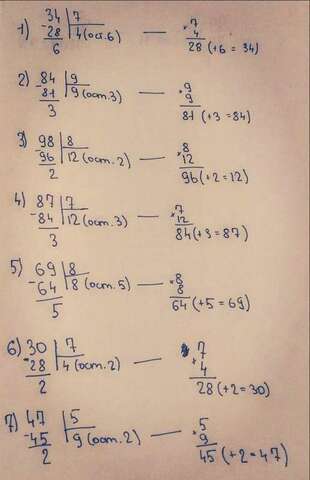 1) 34 | 7 — 7
-28 | 4 (ост.6) × 4
6 28 (+6 = 34)
2) 84 | 9 — 9
-81 | 9 (ост.3) × 9
3 81 (+3 = 84)
3) 98 | 8 — 8
-96 | 12 (ост.2) × 12
2 96 (+2 = 12)
4) 87 | 7 — 7
-84 | 12 (ост.3) × 12
3 84 (+3 = 87)
5) 69 | 8 — 8
-64 | 8 (ост.5) × 8
5 64 (+5 = 69)
6) 30 | 7 — 7
-28 | 4 (ост.2) × 4
2 28 (+2 = 30)
7) 47 | 5 — 5
-45 | 9 (ост.2) × 9
2 45 (+2 = 47)